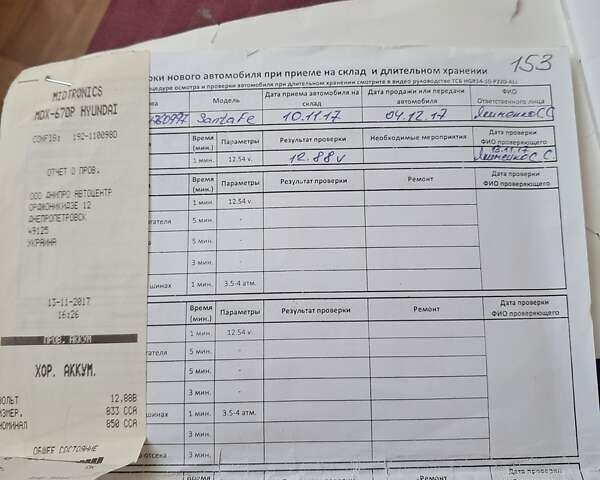 MIDTRONICS
MDX-670P HYUNDAI
CONFIG: 192-110098D
ОТЧЕТ О ПРОВ.
ООО ДНИПРО АВТОЦЕНТР
ОРДЖОНИКИДЗЕ 12
ДНЕПРОПЕТРОВСК
49125
УКРАИНА
13-11-2017
16:26
ПРОВ. АККУМ
ХОР. АККУМ.
ВОЛЬТ 12.88В
ИЗМЕР. 833 CCA
НОМИНАЛ 850 CCA
ОБЩЕЕ СОСТОЯНИЕ
153
рки нового автомобиля при приеме на склад и длительном хранении
цедуре осмотра и проверки автомобиля при длительном хранении смотрите в видео руководстве ТСБ
Модель Дата приема автомобиля на склад Дата продажи или передачи автомобиля ФИО Ответственного лица
Santa Fe 10.11.17 04.12.17
Время (мин.) Параметры Результат проверки Необходимые мероприятия Дата проверки ФИО проверяющего
1 мин. 12.54 v. 12.88 v 13.11.17
Время (мин.) Параметры Результат проверки Ремонт Дата проверки ФИО проверяющего
1 мин. 12.54 v.
гатели 5 мин. -
5 мин. -
3 мин. -
шинах 1 мин. 3.5-4 атм.
Время (мин.) Параметры Результат проверки Ремонт Дата проверки ФИО проверяющего
1 мин. 12.54 v.
гатели 5 мин. -
5 мин. -
3 мин. -
шинах 1 мин. 3.5-4 атм.
3 мин.
отсека 3 мин.
Время Параметры Результат проверки Ремонт Дата проверки